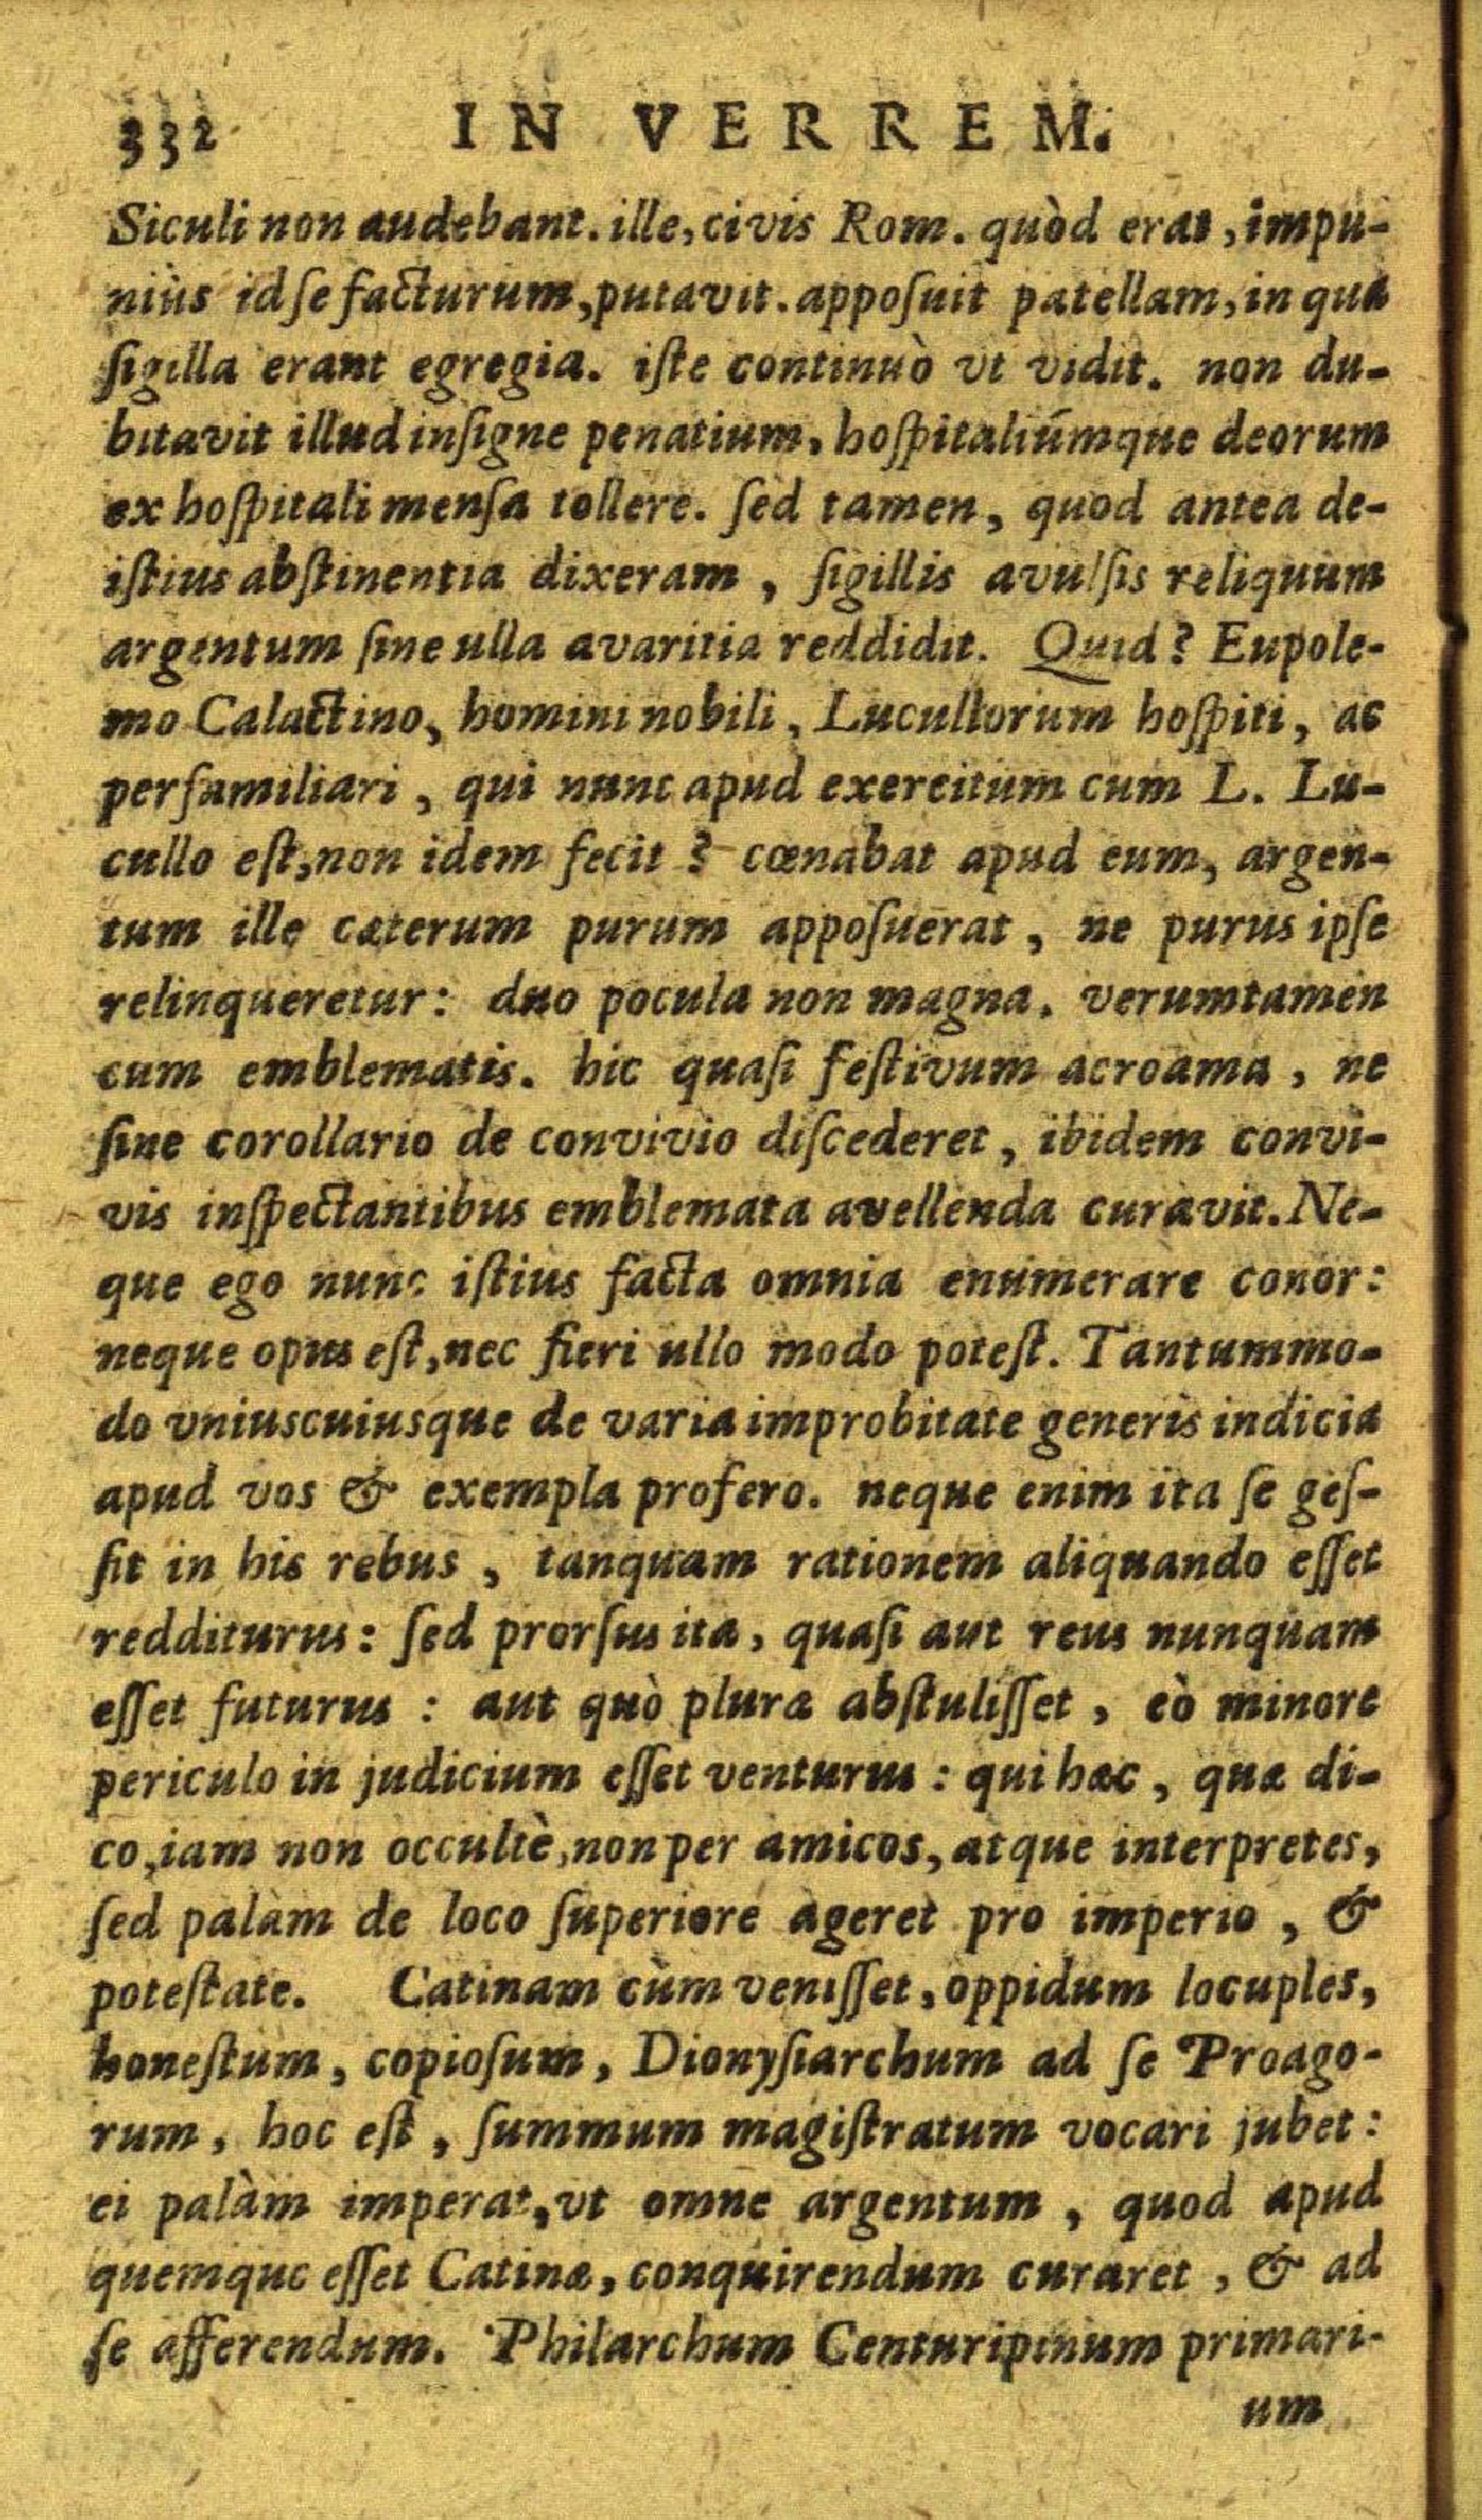 332 IN VERREM.
Siculi non audebant. ille, civis Rom. quòd erat, impu-
niùs id ſe facturum, putavit. appoſuit patellam, in qua
ſigilla erant egregia. iſte continuò vt vidit. non du-
bitavit illud inſigne penatium, hoſpitaliúmque deorum
ex hoſpitali menſa tollere. ſed tamen, quod antea de-
iſtius abſtinentia dixeram, ſigillis avulſis reliquum
argentum ſine ulla avaritia reddidit. Quid? Eupole-
mo Calactino, homini nobili, Lucullorum hoſpiti, ac
perfamiliari, qui nunc apud exereitum cum L. Lu-
cullo eſt, non idem fecit? cœnabat apud eum, argen-
tum ille cæterum purum appoſuerat, ne purus ipſe
relinqueretur: duo pocula non magna. verumtamen
cum emblematis. hic quaſi feſtivum acroama, ne
ſine corollario de convivio diſcederet, ibidem convi-
vis inſpectantibus emblemata avellenda curavit. Ne-
que ego nunc iſtius facta omnia enumerare conor:
neque opus eſt, nec fieri ullo modo poteſt. Tantummo-
do vniuscuiusque de varia improbitate generis indicia
apud vos & exempla profero. neque enim ita ſe geſ-
ſit in his rebus, tanquam rationem aliquando eſſet
redditurus: ſed prorſus ita, quaſi aut reus nunquam
eſſet futurus: aut quò plura abſtuliſſet, eò minore
periculo in judicium eſſet venturus: qui hæc, quæ di-
co, iam non occultè, non per amicos, atque interpretes,
ſed palàm de loco ſuperiore ageret pro imperio, &
poteſtate. Catinam cùm veniſſet, oppidum locuples,
honeſtum, copioſum, Dionyſiarchum ad ſe Proago-
rum, hoc eſt, ſummum magiſtratum vocari jubet:
ei palàm imperat, vt omne argentum, quod apud
quemque eſſet Catinæ, conquirendum curaret, & ad
ſe afferendum. Philarchum Centuripinum primari-
um